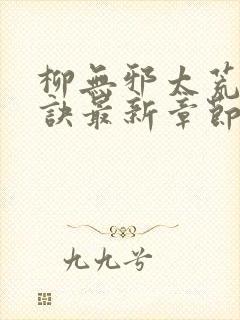 柳無邪太荒
訣最新章節
九九兮